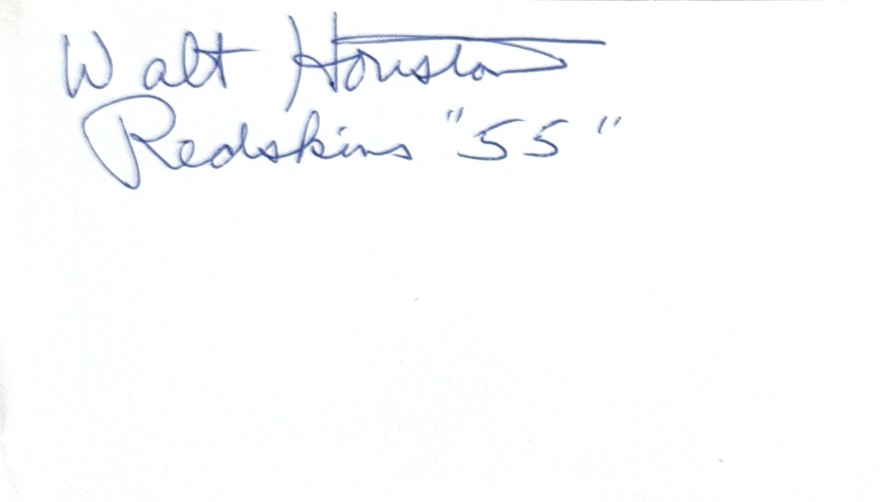 Walt Houston
Redskins "55"